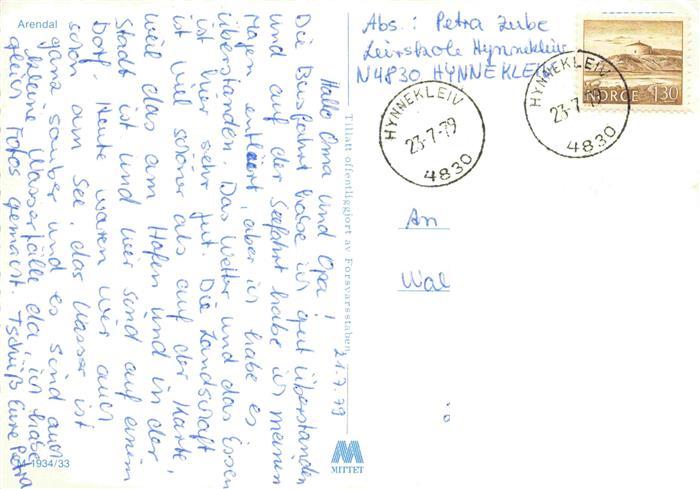 Arendal
Hallo Oma und Opa! 21.7.79
Die Busfahrt habe ich gut überstanden
und auf der Seefahrt habe ich meinen
Magen entleert, aber ich habe es
überstanden. Das Wetter und das Essen
ist hier sehr gut. Die Landschaft
ist viel schöner als auf der Karte,
weil das am Hafen und in der
Stadt ist und wir sind auf einem
Dorf. Heute waren wir auch
schon am See, das Wasser ist
ganz sauber und es sind auch
kleine Wasserfälle da, ich habe
gleich Fotos gemacht. Tschüß Eure Petra
M-1934/33
Tillatt offentliggjort av Forsvarsstaben
MITTET
Abs.: Petra Zube
Leirskole Hynnekleiv
N4830 HYNNEKLEIV
HYNNEKLEIV
23-7-79
4830
HYNNEKLEIV
23-7-79
4830
NORGE 130
An
Wal